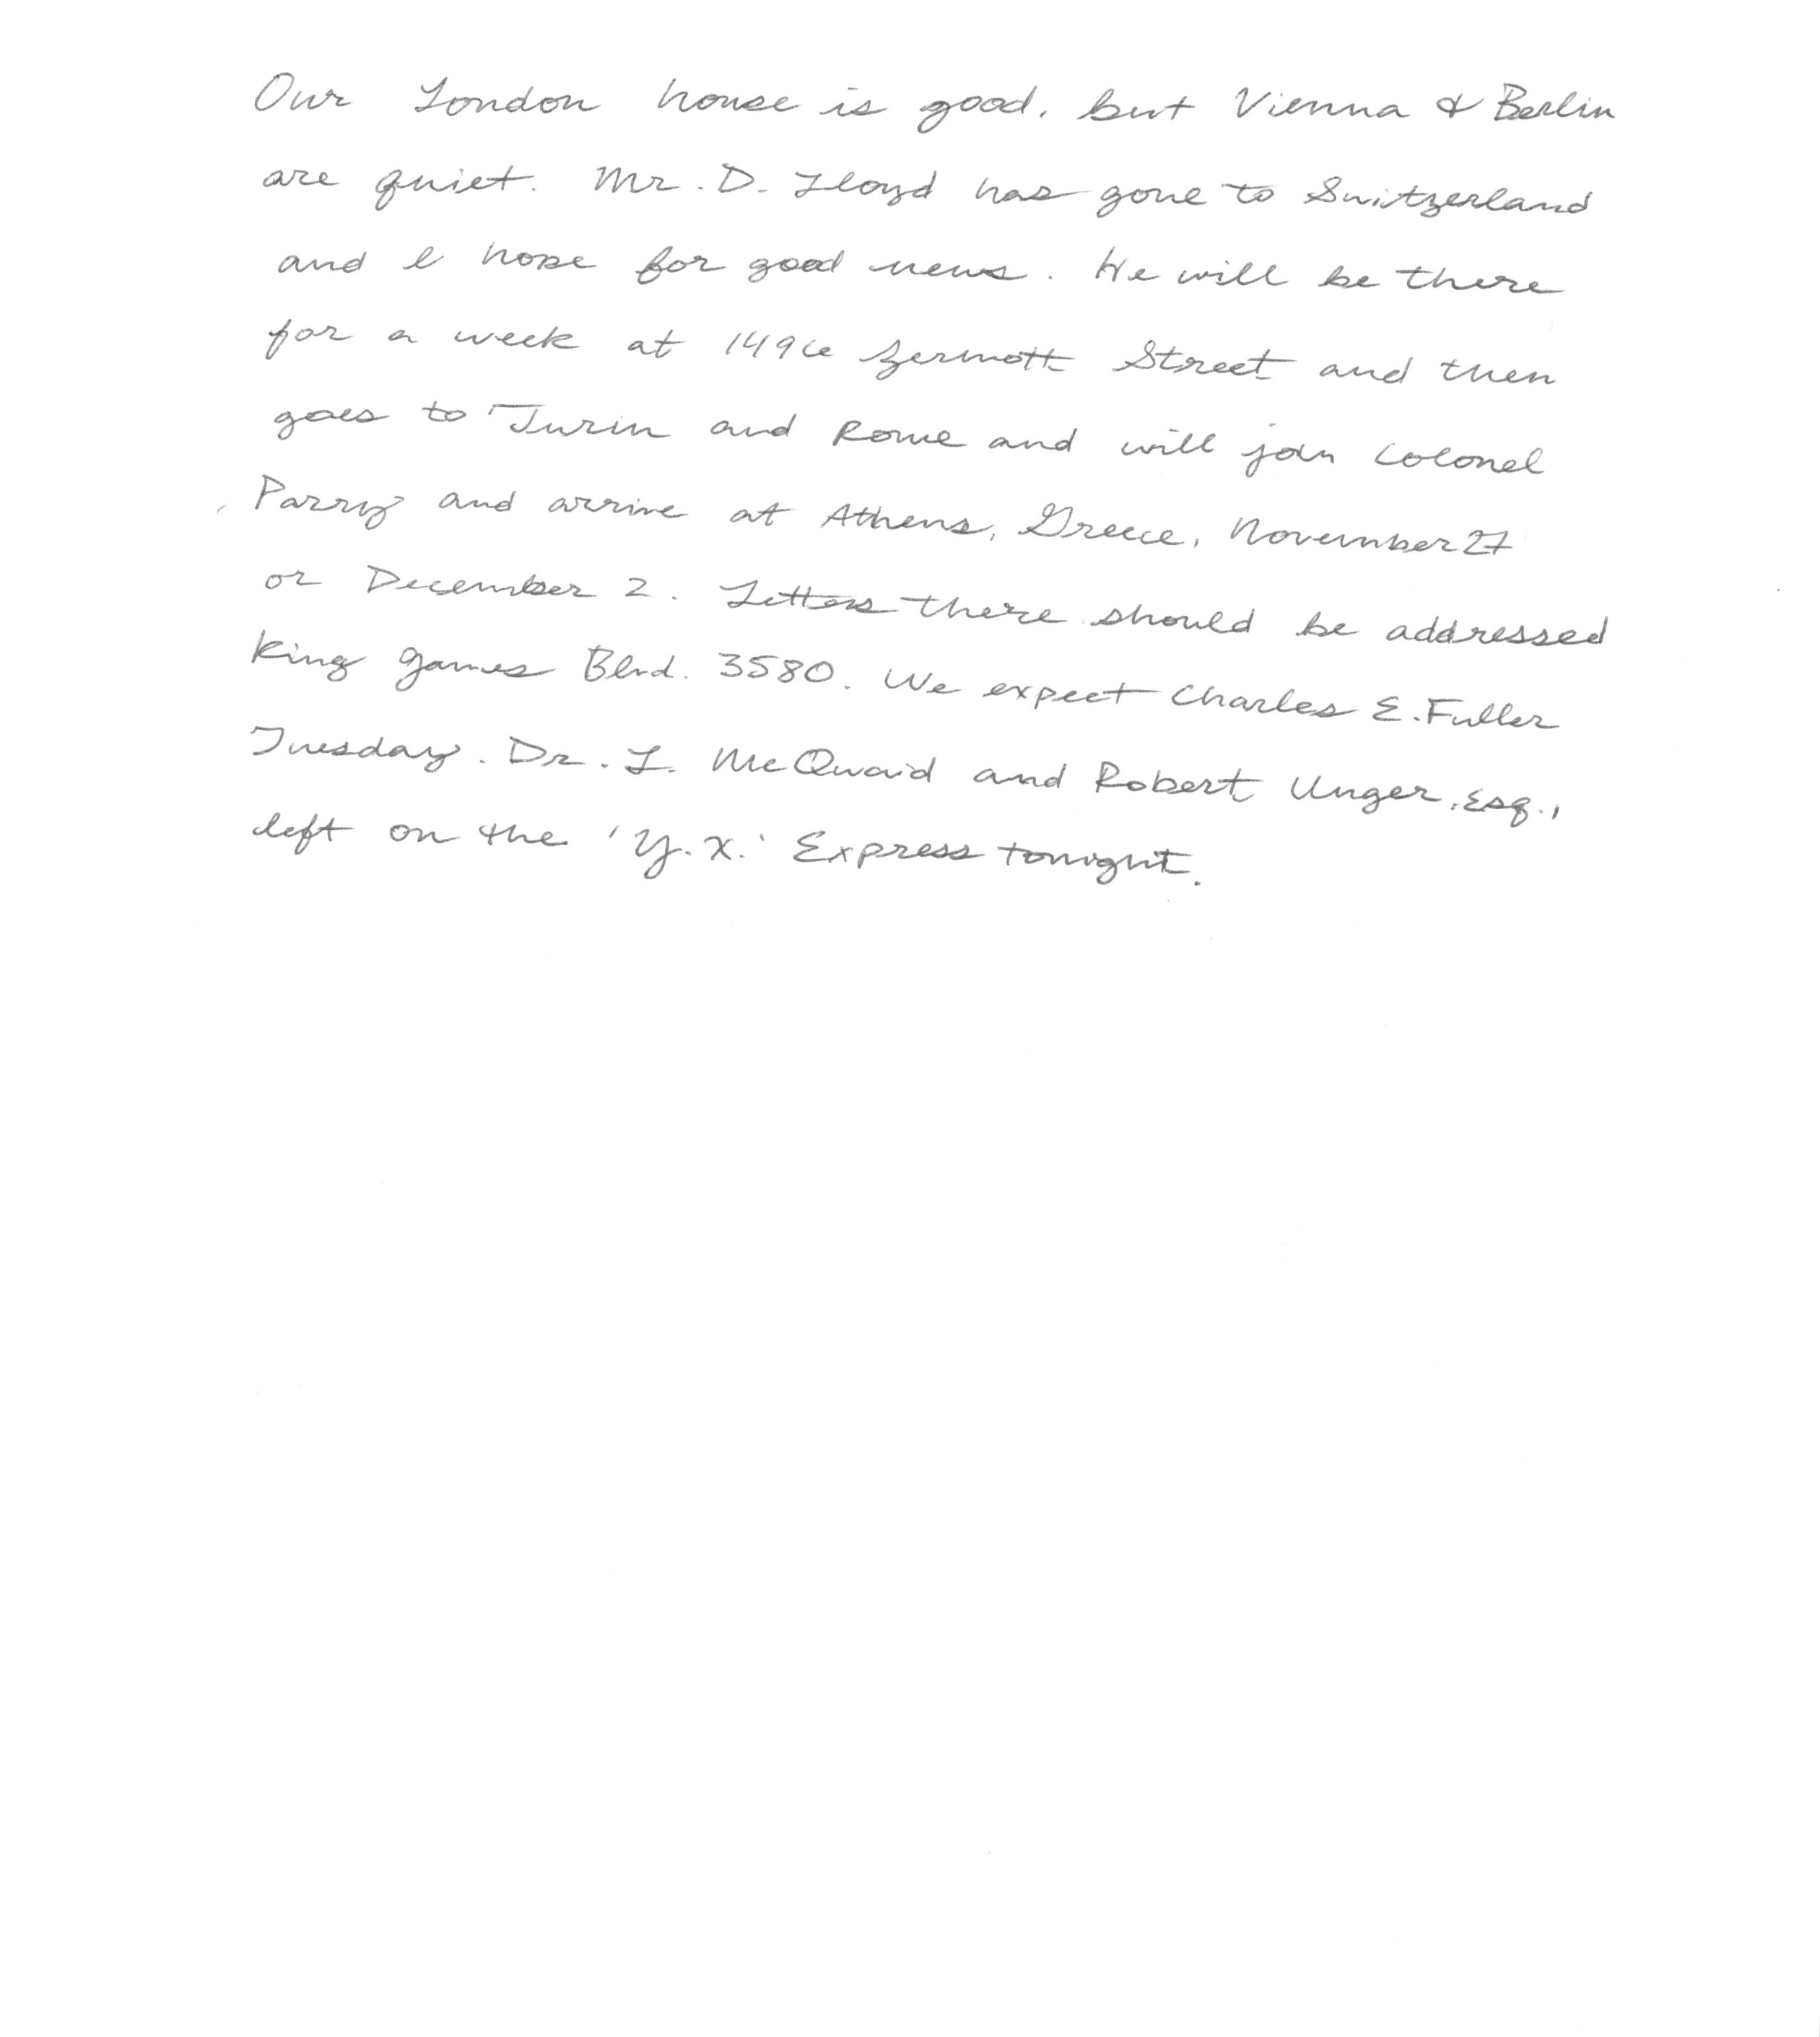 Our London house is good, but Vienna & Berlin
are quiet. Mr. D. Lloyd has gone to Switzerland
and I hope for good news. He will be there
for a week at 1496 Zermott Street and then
goes to Turin and Rome and will join Colonel
Parry and arrive at Athens, Greece, November 27
or December 2. Letters there should be addressed
King James Blvd. 3580. We expect Charles E. Fuller
Tuesday. Dr. L. McQuaid and Robert Unger, Esq.,
left on the 'Y.X.' Express tonight.